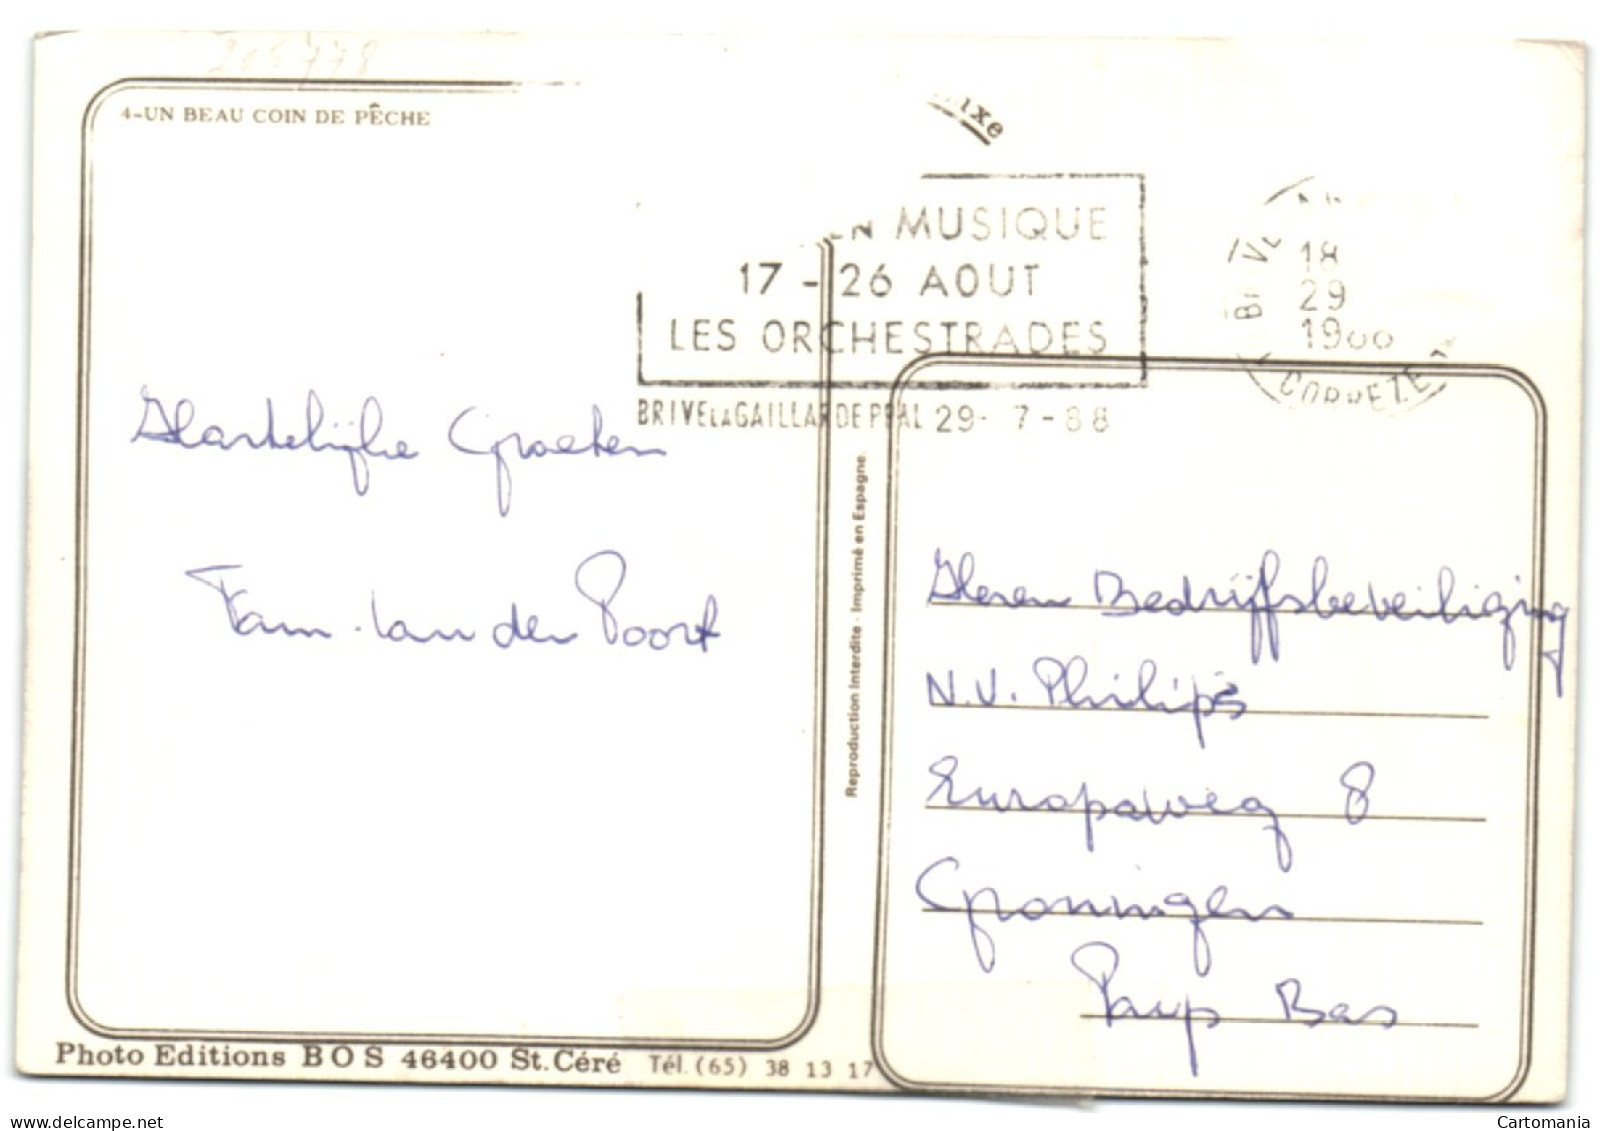 208778
4-UN BEAU COIN DE PÊCHE
EN MUSIQUE
17 - 26 AOUT
LES ORCHESTRADES
BRIVE LA GAILLARDE PPAL 29- 7 -88
18
29
CORREZE
Hartelijke Groeten
Fam. van der Poort
Reproduction Interdite - Imprimé en Espagne.
Heren Bedrijfsbeveiliging
N.V. Philips
Europaweg 8
Groningen
Pays Bas
Photo Editions BOS 46400 St. Céré Tél. (65) 38 13 17
Cartomania